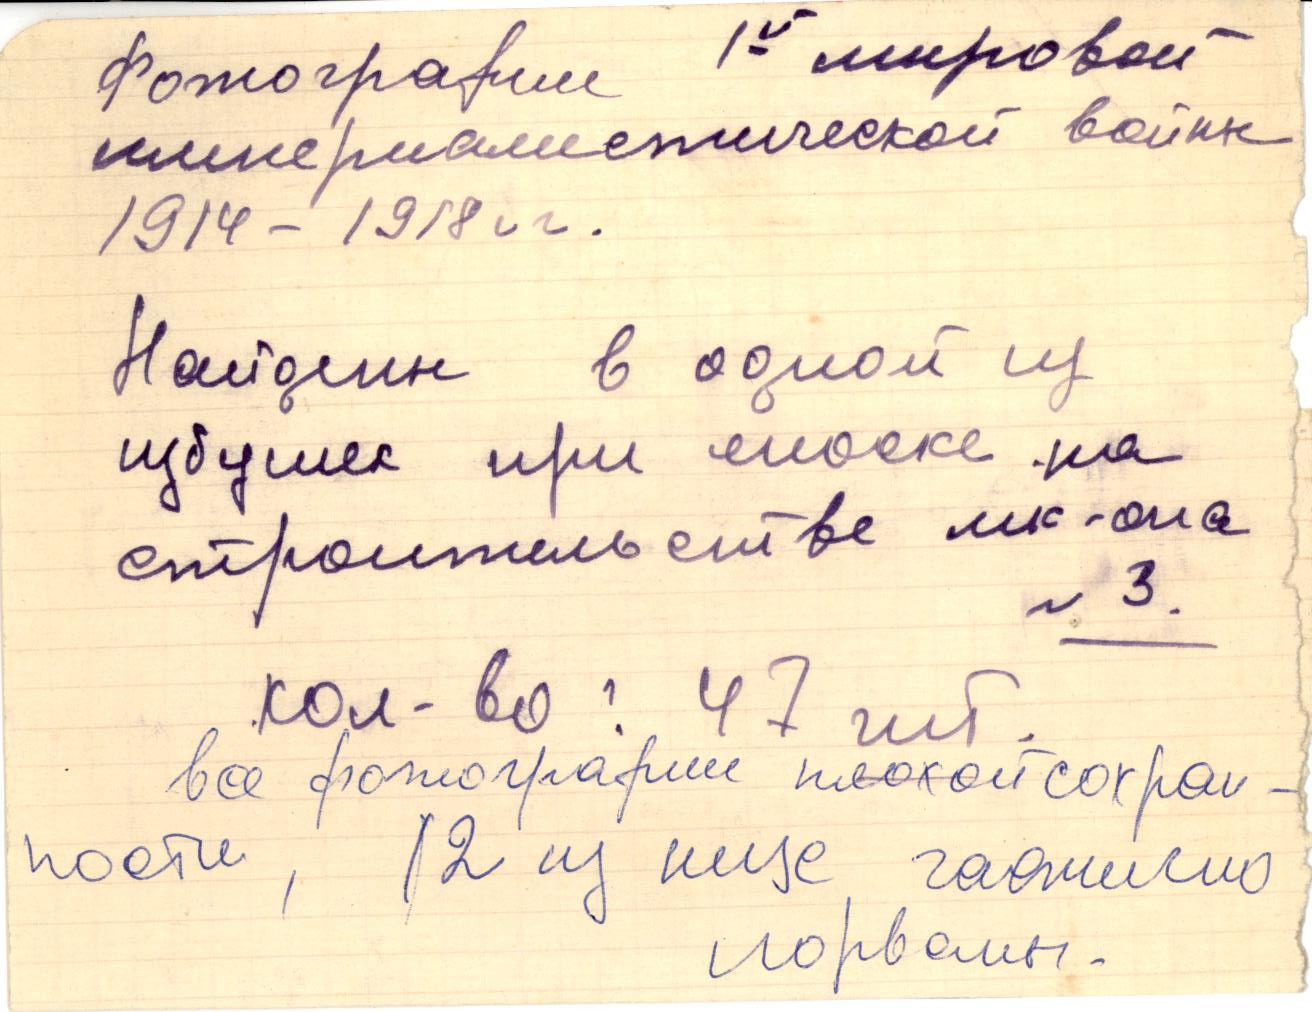 Фотографии 1й мировой
империалистической войны
1914 – 1918 гг.
Найдены в одной из
избушек при сносе на
строительстве мк-она
№ 3.
кол-во: 47 шт.
все фотографии плохой сохран-
ности, 12 из них частично
порваны.